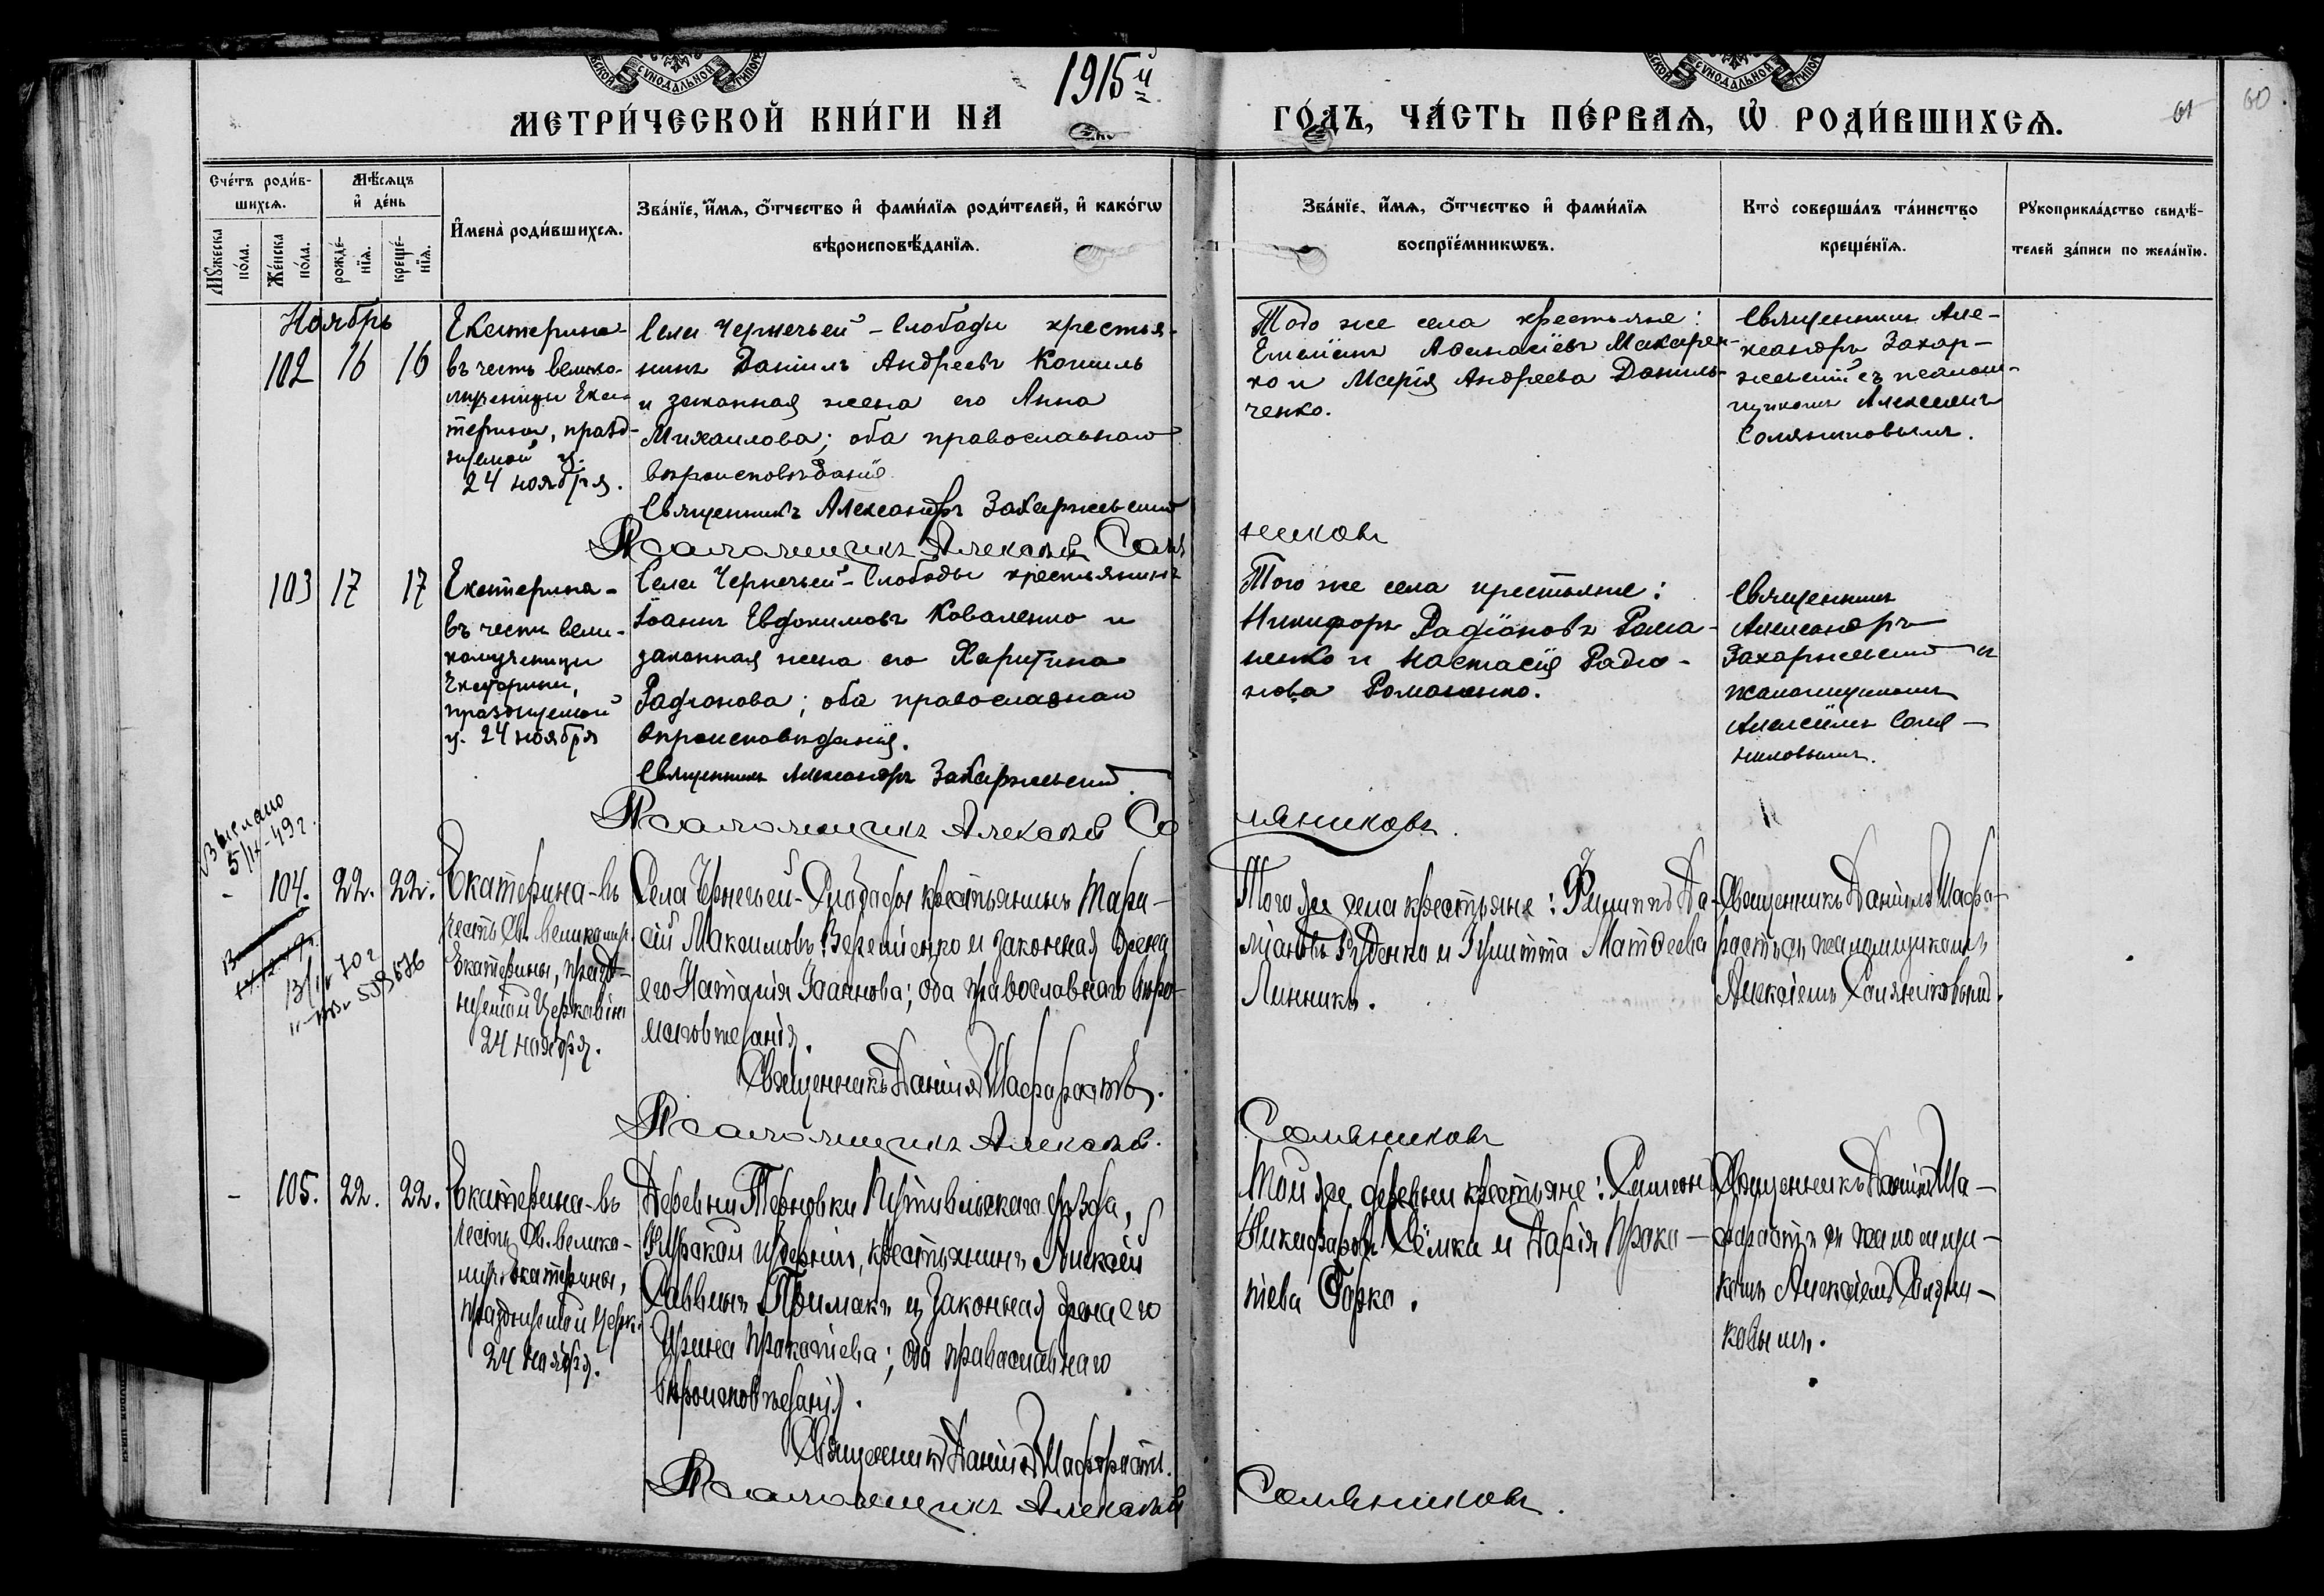 СѴНОДАЛЬНОЙ
СѴНОДАЛЬНОЙ
МЕТРИ́ЧЕСКОЙ КНИ́ГИ НА 1915й ГО́ДЪ, ЧА́СТЬ ПЕ́РВАѦ, Ѡ҆ РОДИ́ВШИХСѦ.
61 60.
Сче́тъ роди́в-
шихсѧ.
Мѣ́сѧцъ
и҆ де́нь
Мꙋ́жеска
по́ла.
Же́нска
по́ла.
рожде́-
нїѧ.
креще́-
нїѧ.
И҆мена̀ роди́вшихсѧ.
Зва́нїе, и҆́мѧ, ѻ҆́тчество и҆ фами́лїѧ роди́телей, и҆ како́гѡ
вѣроисповѣ́данїѧ.
Зва́нїе, и҆́мѧ, ѻ҆́тчество и҆ фами́лїѧ
воспрїе́мникѡвъ.
Кто̀ соверша́лъ та́инство
креще́нїѧ.
Рꙋкоприкла́дство свидѣ́-
телей за́писи по жела́нїю.
Ноябрь
102 16 16
Екатерина
въ честь велико-
мученицы Ека-
терины, празд-
нуемой ц.
24 ноября.
Села Чернечьей-Слободы крестья-
нинъ Даніилъ Андреевъ Кошиль
и законная жена его Анна
Михаилова; оба православнаго
вѣроисповѣданія
Священникъ Александръ Захаржевскій
Псаломщикъ Алексѣй Соля
никовъ
Того же села крестьяне:
Емеліанъ Аѳанасіевъ Макарен-
ко и Марія Андреева Даниль-
ченко.
Священникъ Але-
ксандръ Захар-
жевскій съ псалом-
щикомъ Алексіемъ
Солянниковымъ.
103 17 17
Екатерина-
въ честь вели-
комученицы
Екатерины,
празднуемой
ц. 24 ноября
Села Чернечьей-Слободы крестьянинъ
Іоаннъ Евдокимовъ Коваленко и
законная жена его Харитина
Радіонова; оба православнаго
вѣроисповѣданія.
Священникъ Александръ Захаржевскій
Псаломщикъ Алексѣй Со
ляниковъ.
Того же села крестьяне:
Никифоръ Радіоновъ Рома-
ненко и Настасія Радіо-
нова Романенко.
Священникъ
Александръ
Захаржевскій и
псаломщикомъ
Алексіемъ Соля-
никовымъ.
Выслано
5/IX-49г.
- 104. 22. 22.
Екатерина-въ
честь Св. великомуч.
Екатерины, празд-
нуемой Церковію
24 ноября.
Села Чернечьей-Слободы крестьянинъ Тара-
сій Максимовъ Веремѣенко и законная жена
его Наталія Іоаннова; оба православнаго вѣро-
исповѣданія.
Священникъ Даніилъ Шафарастовъ.
Псаломщикъ Алексѣй.
Соляниковъ
Того же села крестьяне: Филиппъ Да-
міановъ Руденко и Іулитта Матѳеева
Линникъ.
Священникъ Даніилъ Шафа-
растъ съ псаломщикомъ
Алексіемъ Соляниковымъ.
- 105. 22. 22.
Екатерина-въ
честь Св. велико-
муч. Екатерины,
празднуемой Церк.
24 ноября.
Деревни Терновки Путивльскаго уѣзда,
Курской губерніи, крестьянинъ Алексѣй
Саввинъ Примакъ и законная жена его
Ирина Прокопіева; оба православнаго
вѣроисповѣданія.
Священникъ Даніилъ Шафарастъ.
Псаломщикъ Алексѣй
Соляниковъ.
Той же деревни крестьяне: Симеонъ
Никифоровъ Сёмка и Дарія Проко-
піева Горка.
Священникъ Даніилъ Ша-
фарастъ съ псаломщи-
комъ Алексіемъ Соляни-
ковымъ.